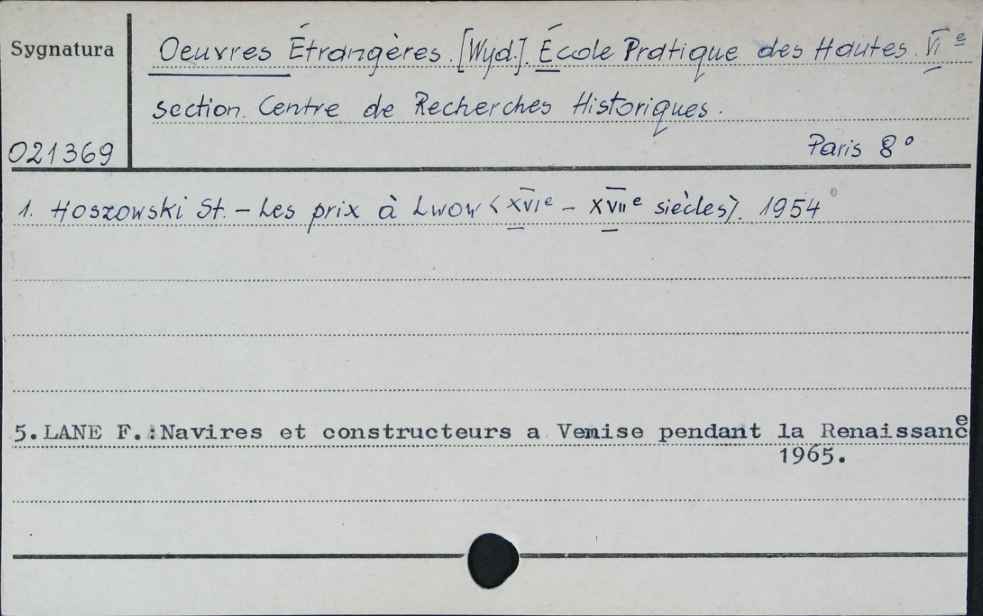 Sygnatura
Oeuvres Étrangères. [Wyd.]. École Pratique des Hautes. VI e
section. Centre de Recherches Historiques.
021369
Paris 8°
1. Hoszowski St. - Les prix à Lwow <XVIe - XVIIe siècles>. 1954
5. LANE F.:Navires et constructeurs a Venise pendant la Renaissance
1965.